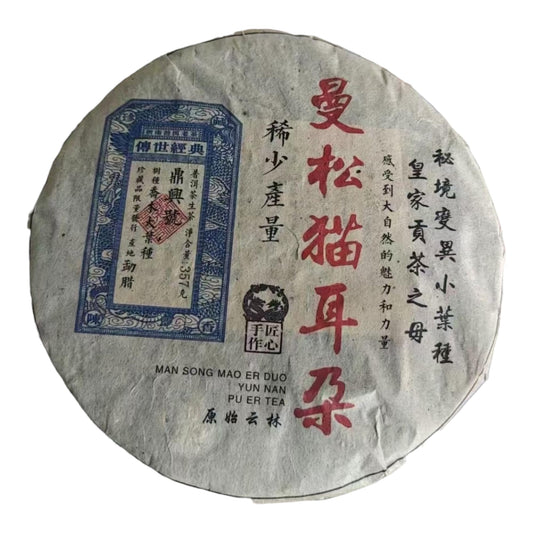 秘境变异小葉種
皇家貢茶之母
感受到大自然的魅力和力量
曼松猫耳朵
稀少產量
傳世經典
普洱茶生茶 淨含量:357克
鼎興號
樹種 喬木大葉種
珍藏品限量發行 産地 勐腊
陳香
匠心
手作
MAN SONG MAO ER DUO
YUN NAN
PU ER TEA
原始云林